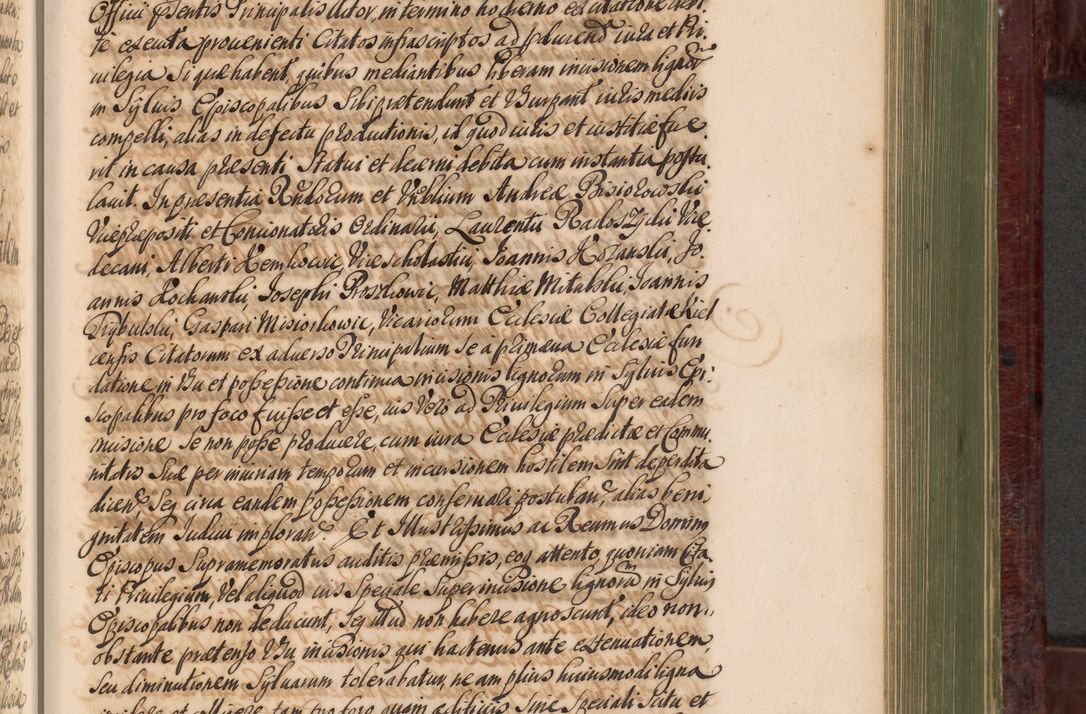 Officii pñtentis Principalis Actor, in termino hodierno ex citatione debi
te executa provenienti Citatos infrascriptos ad ploducend iura et Pri
vilegia si que habent, quibus mediantibus liberam incisionem lignorũ
in Sylvis Episcopalibus sibi prætendunt et Vsurpant iuris mediis
compelli, alias in defectu ploductionis, id quod iuris et iustitiæ fue
rit in causa plæsenti statui et decerni debita cum instantia postu
lavit. In præsentia Rńdorum et Vrbilium Andreæ Bisiorowski
Vicepræpositi et Concionatoris Ordinarii, Laurentii Radoszycki Vice
decani, Alberti Kemkowic, Vicescholastici, Joannis Kozanski, Jo
annis Kochanski, Josephi Roszkowic, Matthiæ Mitalski, Joannis
Przybulski, Gaspari Misiorkowic, Vicariorum Ecclesiæ Collegiatæ Kiel
censis Citatorum ex adverso Principalium se a primæva Ecclesiæ fun
datione in Vsu et possessione continua incisionis lignorum in Sylvis Epi
scopalibus pro foco fuisse et esse, ius Vero ad Privilegium super eadem
incisione se non posse producere, cum iura Ecclesiæ prædictæ et Commu
nitatis suæ per iniuriam temporum et incursionem hostilem sint deperdita
dicen. seq circa eandem possessionem conservari postulan, alias beni
gnitatem Judicii imploran. Et Illustrissimus ac Reverendissimus Dominus
Episcopus supramemoratus auditis præmissis, eoq attento quoniam Cita
ti Privilegium, Vel aliquod ius speciale super incisione lignorũ in Sylvis
Episcopalibus non deducunt, seq illud non habere agnoscunt, ideo non
obstante prætenso Vsu incisionis qui hactenus ante extenuationem,
seu diminutionem Sylvarum tolerabatur, ne amplius huiusmodi ligna
incidere et Vehere tam pro foco quam ædificiis sine speciali scitu et